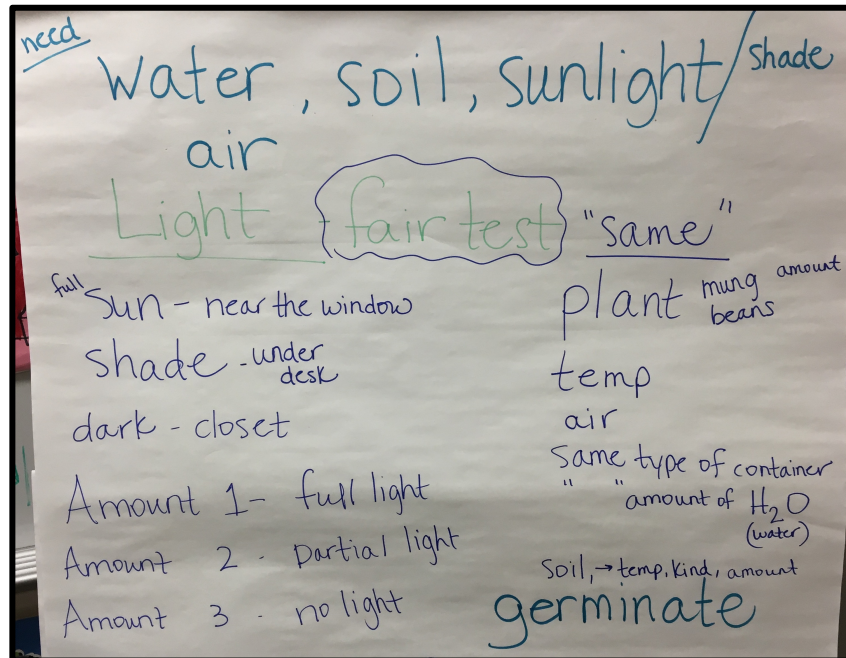 need
water, soil, sunlight/shade
air
Light - fair test "same"
full sun - near the window
shade - under desk
dark - closet
Amount 1 - full light
Amount 2 - partial light
Amount 3 - no light
plant mung beans amount
temp
air
same type of container
" " amount of H₂O
(water)
soil, → temp, kind, amount
germinate